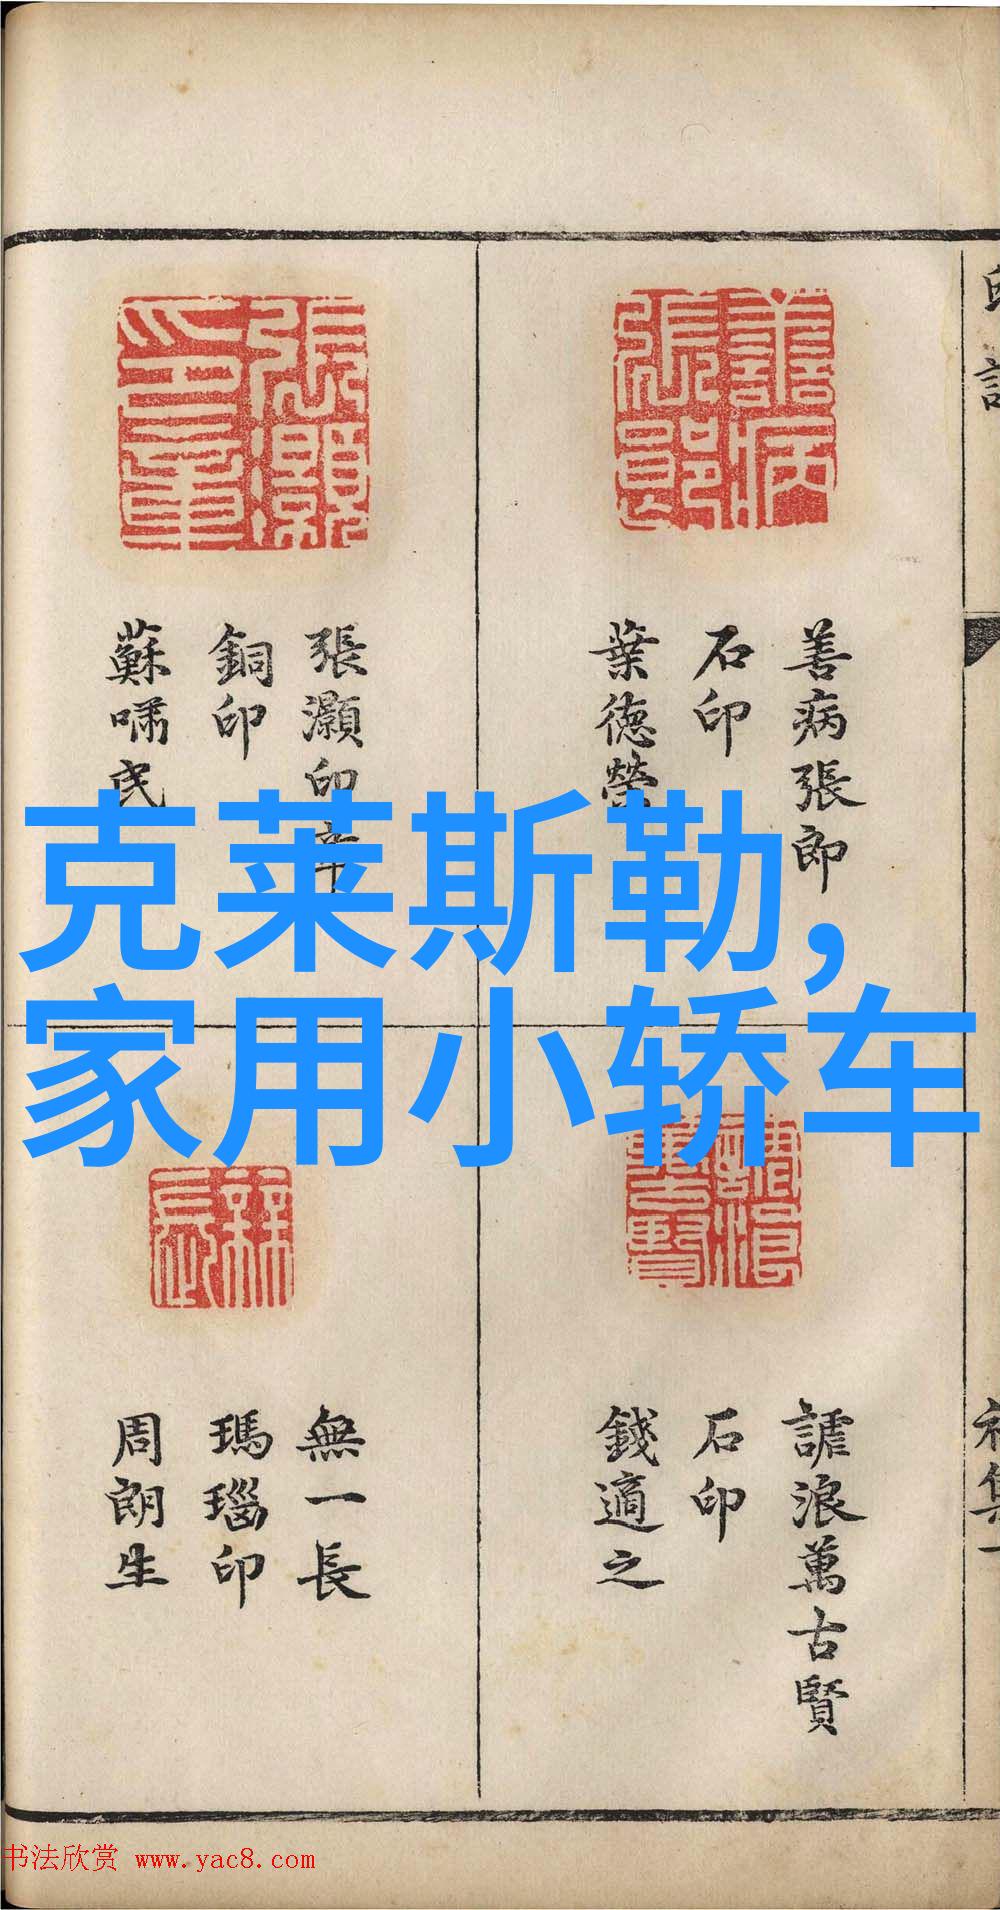 克莱斯勒,
家用小轿车
善病張郎
石印
葉德榮
張灝印章
銅印
蘇嘯民
謔浪萬古賢
石印
錢適之
無一長
瑪瑙印
周朗生
初集一
书法欣赏 www.yac8.com